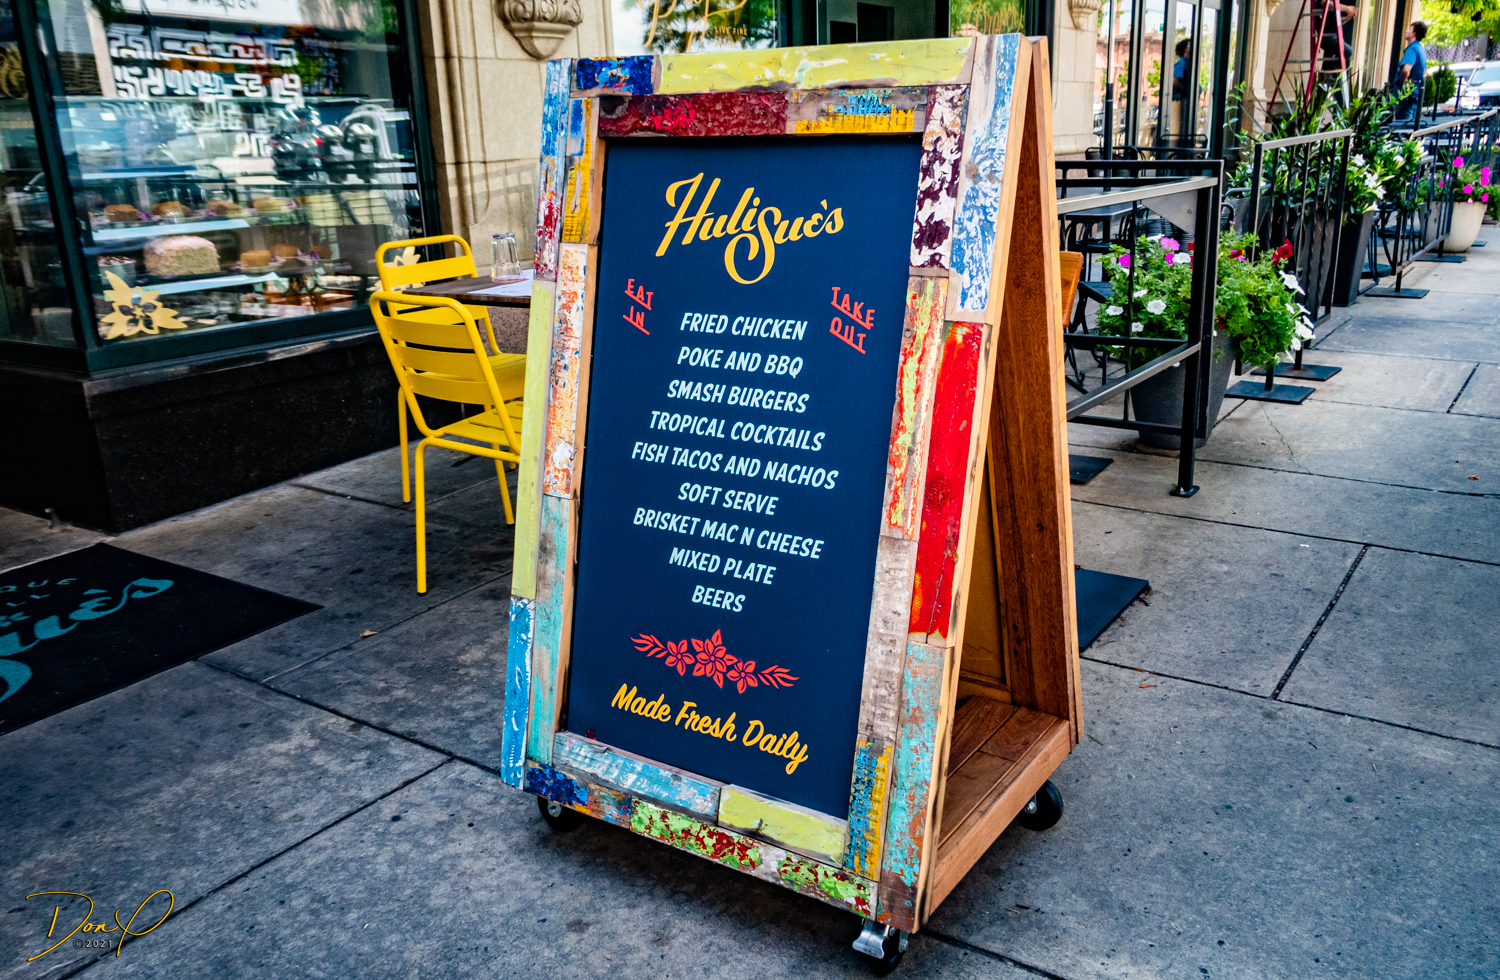 LIVE FIRE
HuliSue's
EAT
IN
TAKE
OUT
FRIED CHICKEN
POKE AND BBQ
SMASH BURGERS
TROPICAL COCKTAILS
FISH TACOS AND NACHOS
SOFT SERVE
BRISKET MAC N CHEESE
MIXED PLATE
BEERS
Made Fresh Daily
Sue's
Don P
©2021